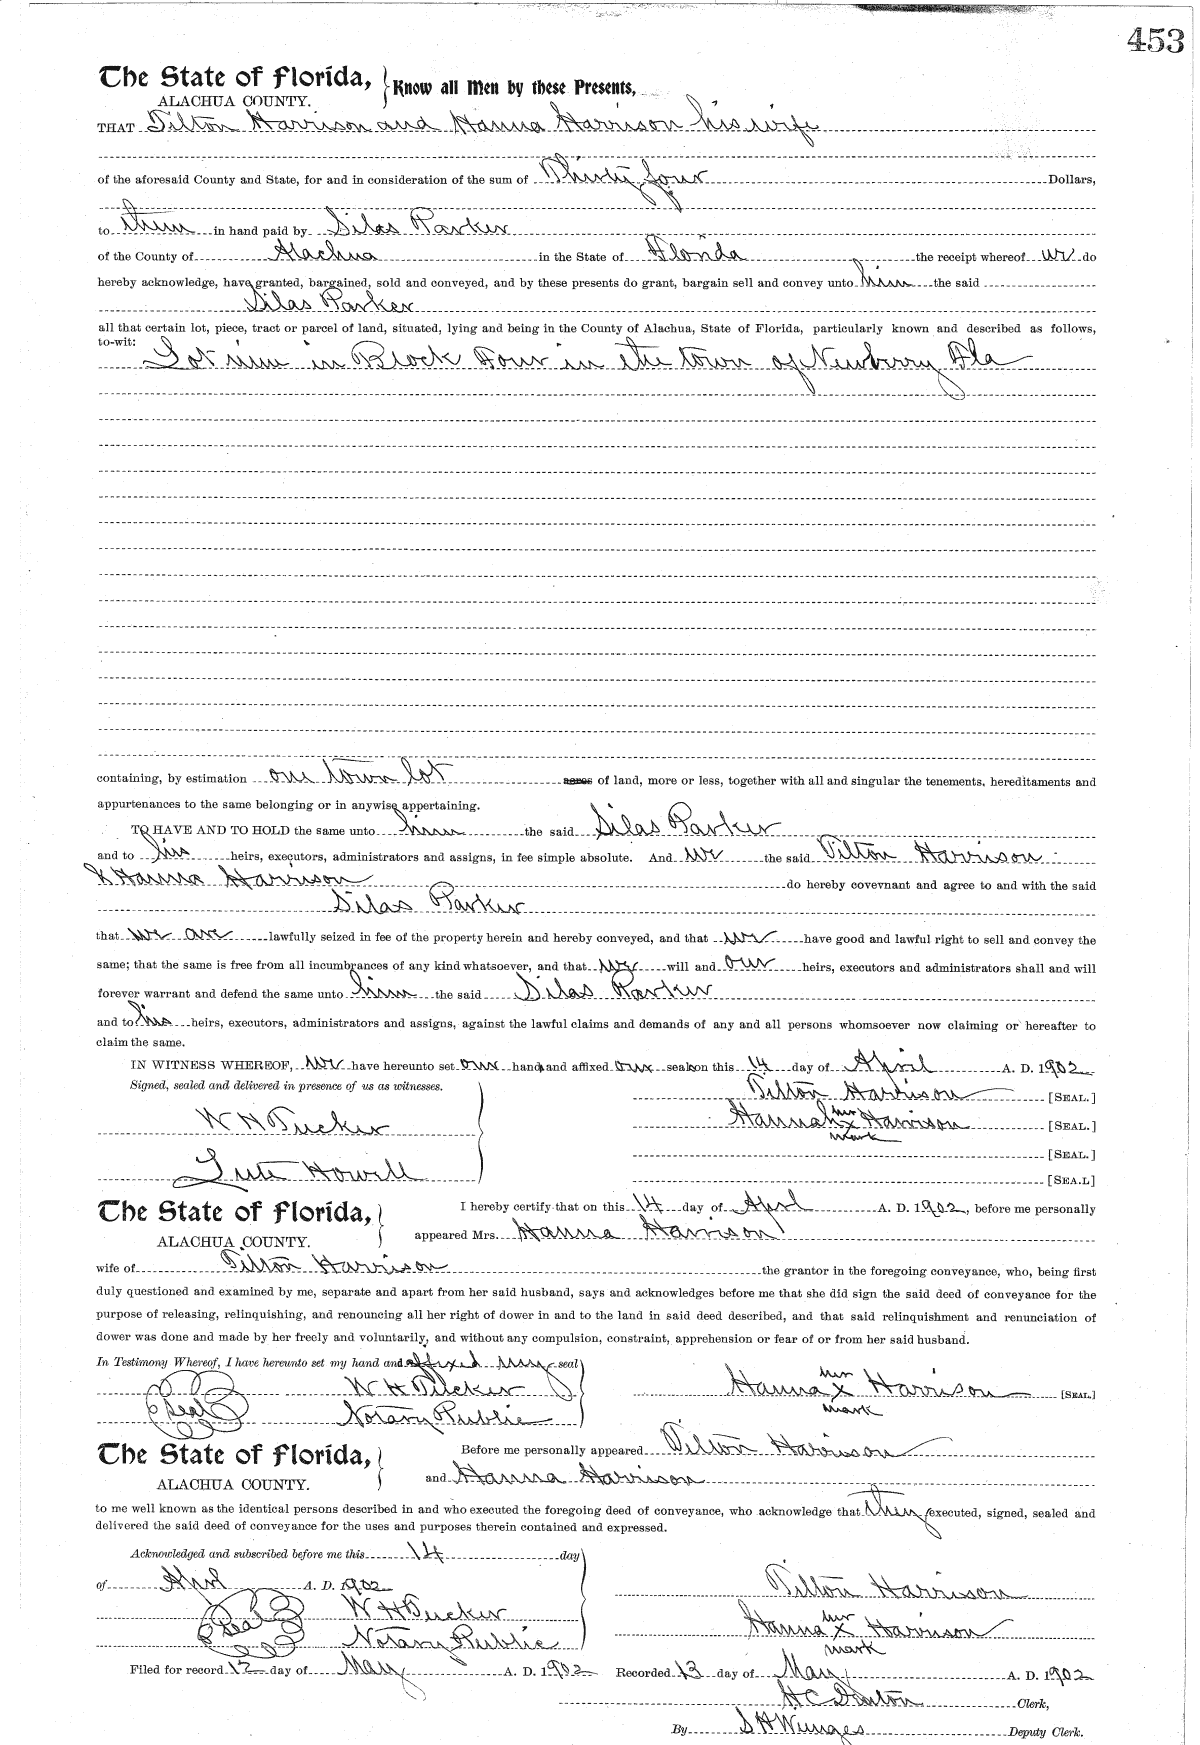 453
The State of Florida, } Know all Men by these Presents,
ALACHUA COUNTY.
THAT Tilton Harrison and Hanna Harrison his wife
of the aforesaid County and State, for and in consideration of the sum of Thirty four Dollars,
to them in hand paid by Silas Parker
of the County of Alachua in the State of Florida the receipt whereof we do
hereby acknowledge, have granted, bargained, sold and conveyed, and by these presents do grant, bargain sell and convey unto him the said
Silas Parker
all that certain lot, piece, tract or parcel of land, situated, lying and being in the County of Alachua, State of Florida, particularly known and described as follows,
to-wit: Lot nine in Block Four in the town of Newberry Fla
containing, by estimation one town lot acres of land, more or less, together with all and singular the tenements, hereditaments and
appurtenances to the same belonging or in anywise appertaining.
TO HAVE AND TO HOLD the same unto him the said Silas Parker
and to his heirs, executors, administrators and assigns, in fee simple absolute. And we the said Tilton Harrison
& Hanna Harrison do hereby covevnant and agree to and with the said
Silas Parker
that we are lawfully seized in fee of the property herein and hereby conveyed, and that we have good and lawful right to sell and convey the
same; that the same is free from all incumbrances of any kind whatsoever, and that we will and our heirs, executors and administrators shall and will
forever warrant and defend the same unto him the said Silas Parker
and to his heirs, executors, administrators and assigns, against the lawful claims and demands of any and all persons whomsoever now claiming or hereafter to
claim the same.
IN WITNESS WHEREOF, we have hereunto set our hands and affixed our seals on this 14 day of April A. D. 1902
Signed, sealed and delivered in presence of us as witnesses.
Tilton Harrison [SEAL.]
W H Tucker
Hannah her x mark Harrison [SEAL.]
[SEAL.]
Lute Howell
[SEA.L]
The State of Florida, } I hereby certify that on this 14 day of April A. D. 1902, before me personally
ALACHUA COUNTY. appeared Mrs. Hanna Harrison
wife of Tilton Harrison the grantor in the foregoing conveyance, who, being first
duly questioned and examined by me, separate and apart from her said husband, says and acknowledges before me that she did sign the said deed of conveyance for the
purpose of releasing, relinquishing, and renouncing all her right of dower in and to the land in said deed described, and that said relinquishment and renunciation of
dower was done and made by her freely and voluntarily, and without any compulsion, constraint, apprehension or fear of or from her said husband.
In Testimony Whereof, I have hereunto set my hand and affixed my seal
Seal W H Tucker
Hanna her x mark Harrison [SEAL.]
Notary Public
The State of Florida, } Before me personally appeared Tilton Harrison
ALACHUA COUNTY. and Hanna Harrison
to me well known as the identical persons described in and who executed the foregoing deed of conveyance, who acknowledge that they executed, signed, sealed and
delivered the said deed of conveyance for the uses and purposes therein contained and expressed.
Acknowledged and subscribed before me this 14 day
of April A. D. 1902
Tilton Harrison
Seal W H Tucker
Hanna her x mark Harrison
Notary Public
Filed for record 12 day of May A. D. 1902 Recorded 13 day of May A. D. 1902
H C Denton Clerk,
By S H Wienges Deputy Clerk.